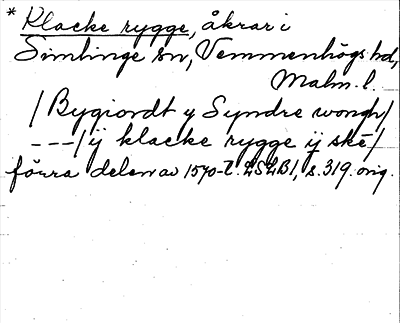 * Klacke rygge, åkrar i
Simlinge sn, Vemmenhögs hd,
Malm. l.
/ Bygiordt y Syndre wongh/
---/ ij klacke rygge ij ske/
förra delen av 1570-t. LSLB1, s. 319. orig.